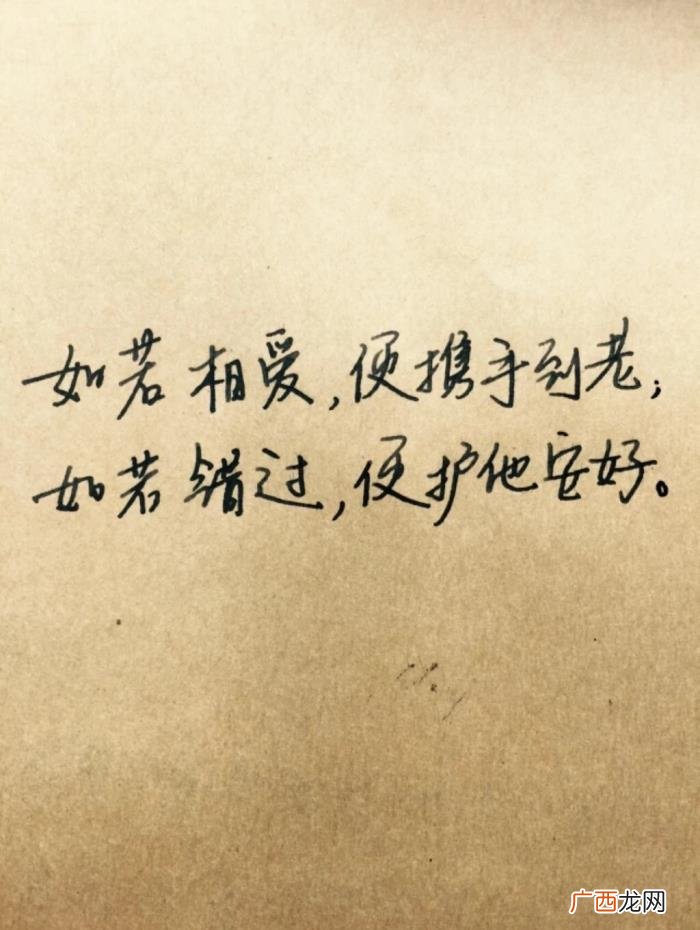 如若相爱,便携手到老;
如若错过,便护他安好。
广西龙网